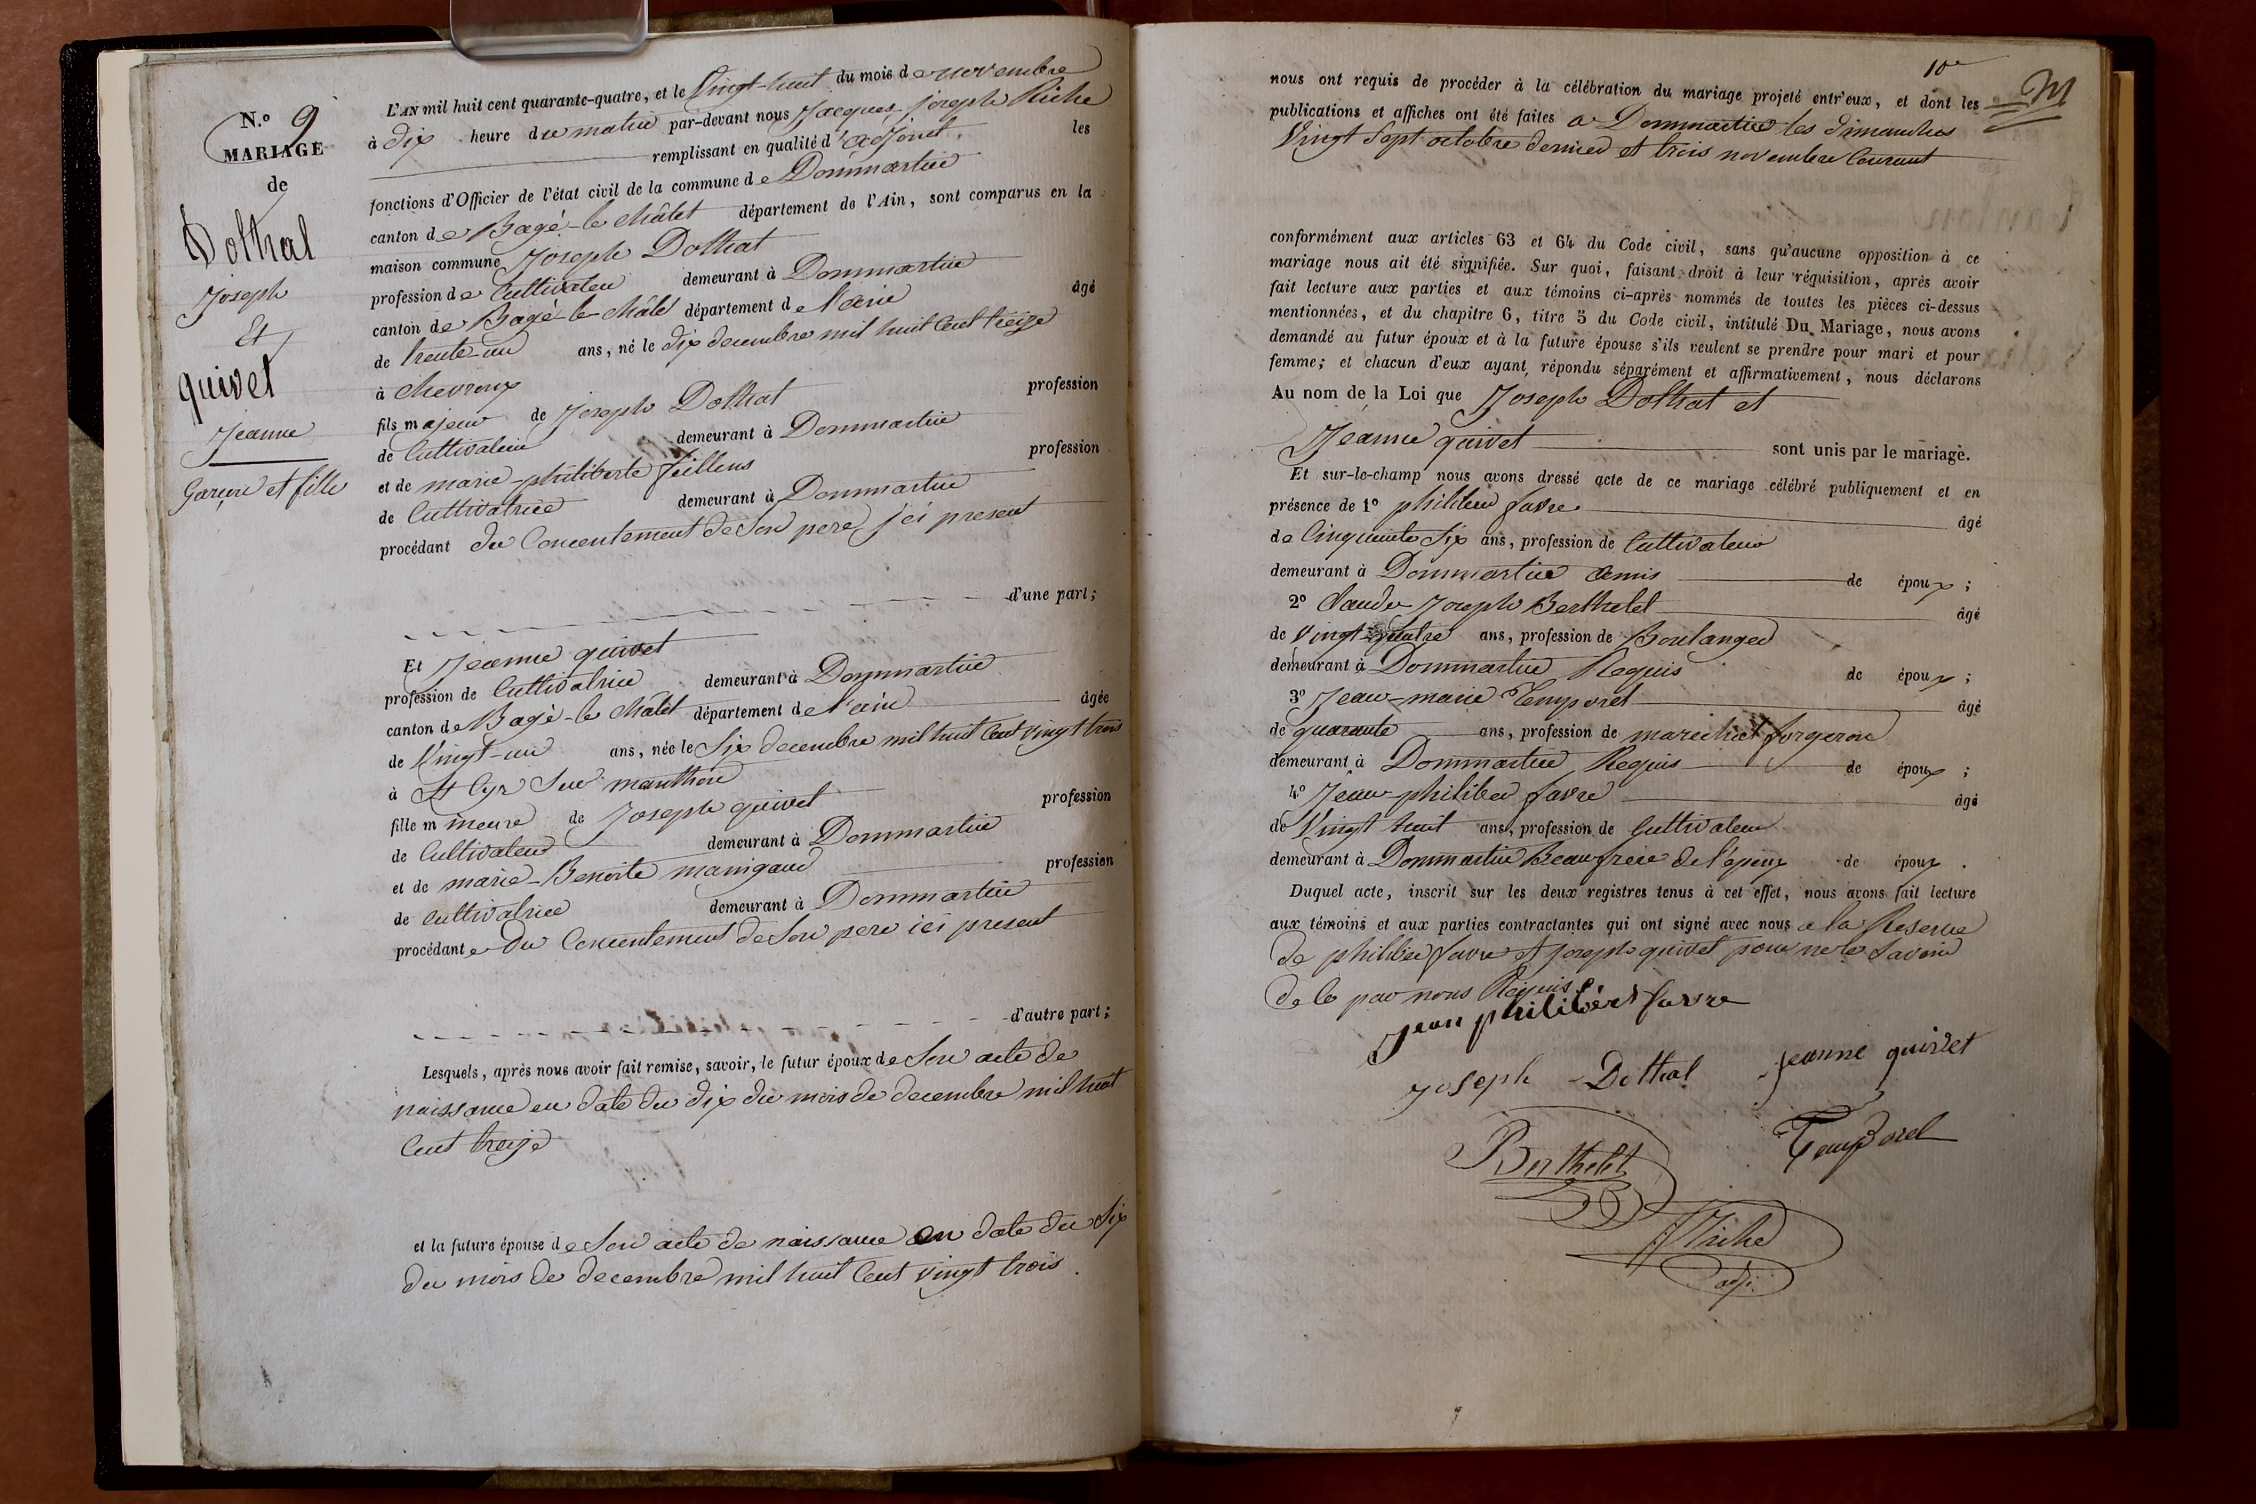 N.o 9
MARIAGE
de
Dothal
Joseph
Et
quivet
Jeanne
Garçon et fille
L'AN mil huit cent quarante-quatre, et le Vingt-huit du mois de novembre
à dix heure du matin par-devant nous Jacques, joseph Riche
remplissant en qualité d'adjoint les
fonctions d'Officier de l'état civil de la commune de Dommartin
canton de Bagé-le Châlet département de l'Ain, sont comparus en la
maison commune Joseph Dothat
profession de Cultivateu demeurant à Dommartin
canton de Bagé-le Châlet département de l'ain âgé
de trente-un ans, né le dix decembre mil huit Cent treize
à Chevroux
fils majeur de Joseph Dothat profession
de Cultivateur demeurant à Dommartin
et de marie-philiberte feillens profession
de Cultivatrice demeurant à Dommartin
procédant du Concentement de Son pere, jci present
d'une part;
Et Jeanne quivet
profession de Cultivatrice demeurant à Dommartin
canton de Bagé-le Châlet département de l'ain âgée
de Vingt-un ans, née le Six decembre mil huit Cent vingt trois
à St Cyr Sur manthon
fille mineure de Joseph quivet profession
de Cultivateur demeurant à Dommartin
et de marie-Benoite manigaud profession
de Cultivatrice demeurant à Dommartin
procédante du Concentement de Son pere ici present
d'autre part;
Lesquels, après nous avoir fait remise, savoir, le futur époux de Son acte de
naissance en date du dix du mois de decembre mil huit
Cent treize
et la future épouse de Son acte de naissance en date du Six
du mois de decembre mil huit Cent vingt trois
10e
M
nous ont requis de procéder à la célébration du mariage projeté entr'eux, et dont les
publications et affiches ont été faites a Dommartin les dimanches
Vingt Sept octobre dernier et trois novembre Courant
conformément aux articles 63 et 64 du Code civil, sans qu'aucune opposition à ce
mariage nous ait été signifiée. Sur quoi, faisant droit à leur réquisition, après avoir
fait lecture aux parties et aux témoins ci-après nommés de toutes les pièces ci-dessus
mentionnées, et du chapitre 6, titre 5 du Code civil, intitulé Du Mariage, nous avons
demandé au futur époux et à la future épouse s'ils veulent se prendre pour mari et pour
femme; et chacun d'eux ayant répondu séparément et affirmativement, nous déclarons
Au nom de la Loi que Joseph Dothat et
Jeanne quivet sont unis par le mariage.
Et sur-le-champ nous avons dressé acte de ce mariage célébré publiquement et en
présence de 1o philiber favre âgé
de Cinquante Six ans, profession de Cultivateur
demeurant à Dommartin amis de époux;
2o Claude Joseph Berthelet âgé
de Vingt-quatre ans, profession de Boulanger
demeurant à Dommartin Requis de époux;
3o Jean-marie Temporel âgé
de quarante ans, profession de marechal forgeron
demeurant à Dommartin Requis de époux;
4o Jean-philiber favre âgé
de Vingt huit ans, profession de Cultivateur
demeurant à Dommartin Beaufrere de l'epoux de époux.
Duquel acte, inscrit sur les deux registres tenus à cet effet, nous avons fait lecture
aux témoins et aux parties contractantes qui ont signé avec nous a la Reserve
de philiber favre et joseph quivet pour ne le Savoir
de ce par nous Requis.
jean philibért favre
joseph Dothal jeanne quivet
Berthelet Temporel
JJRiche
adj.